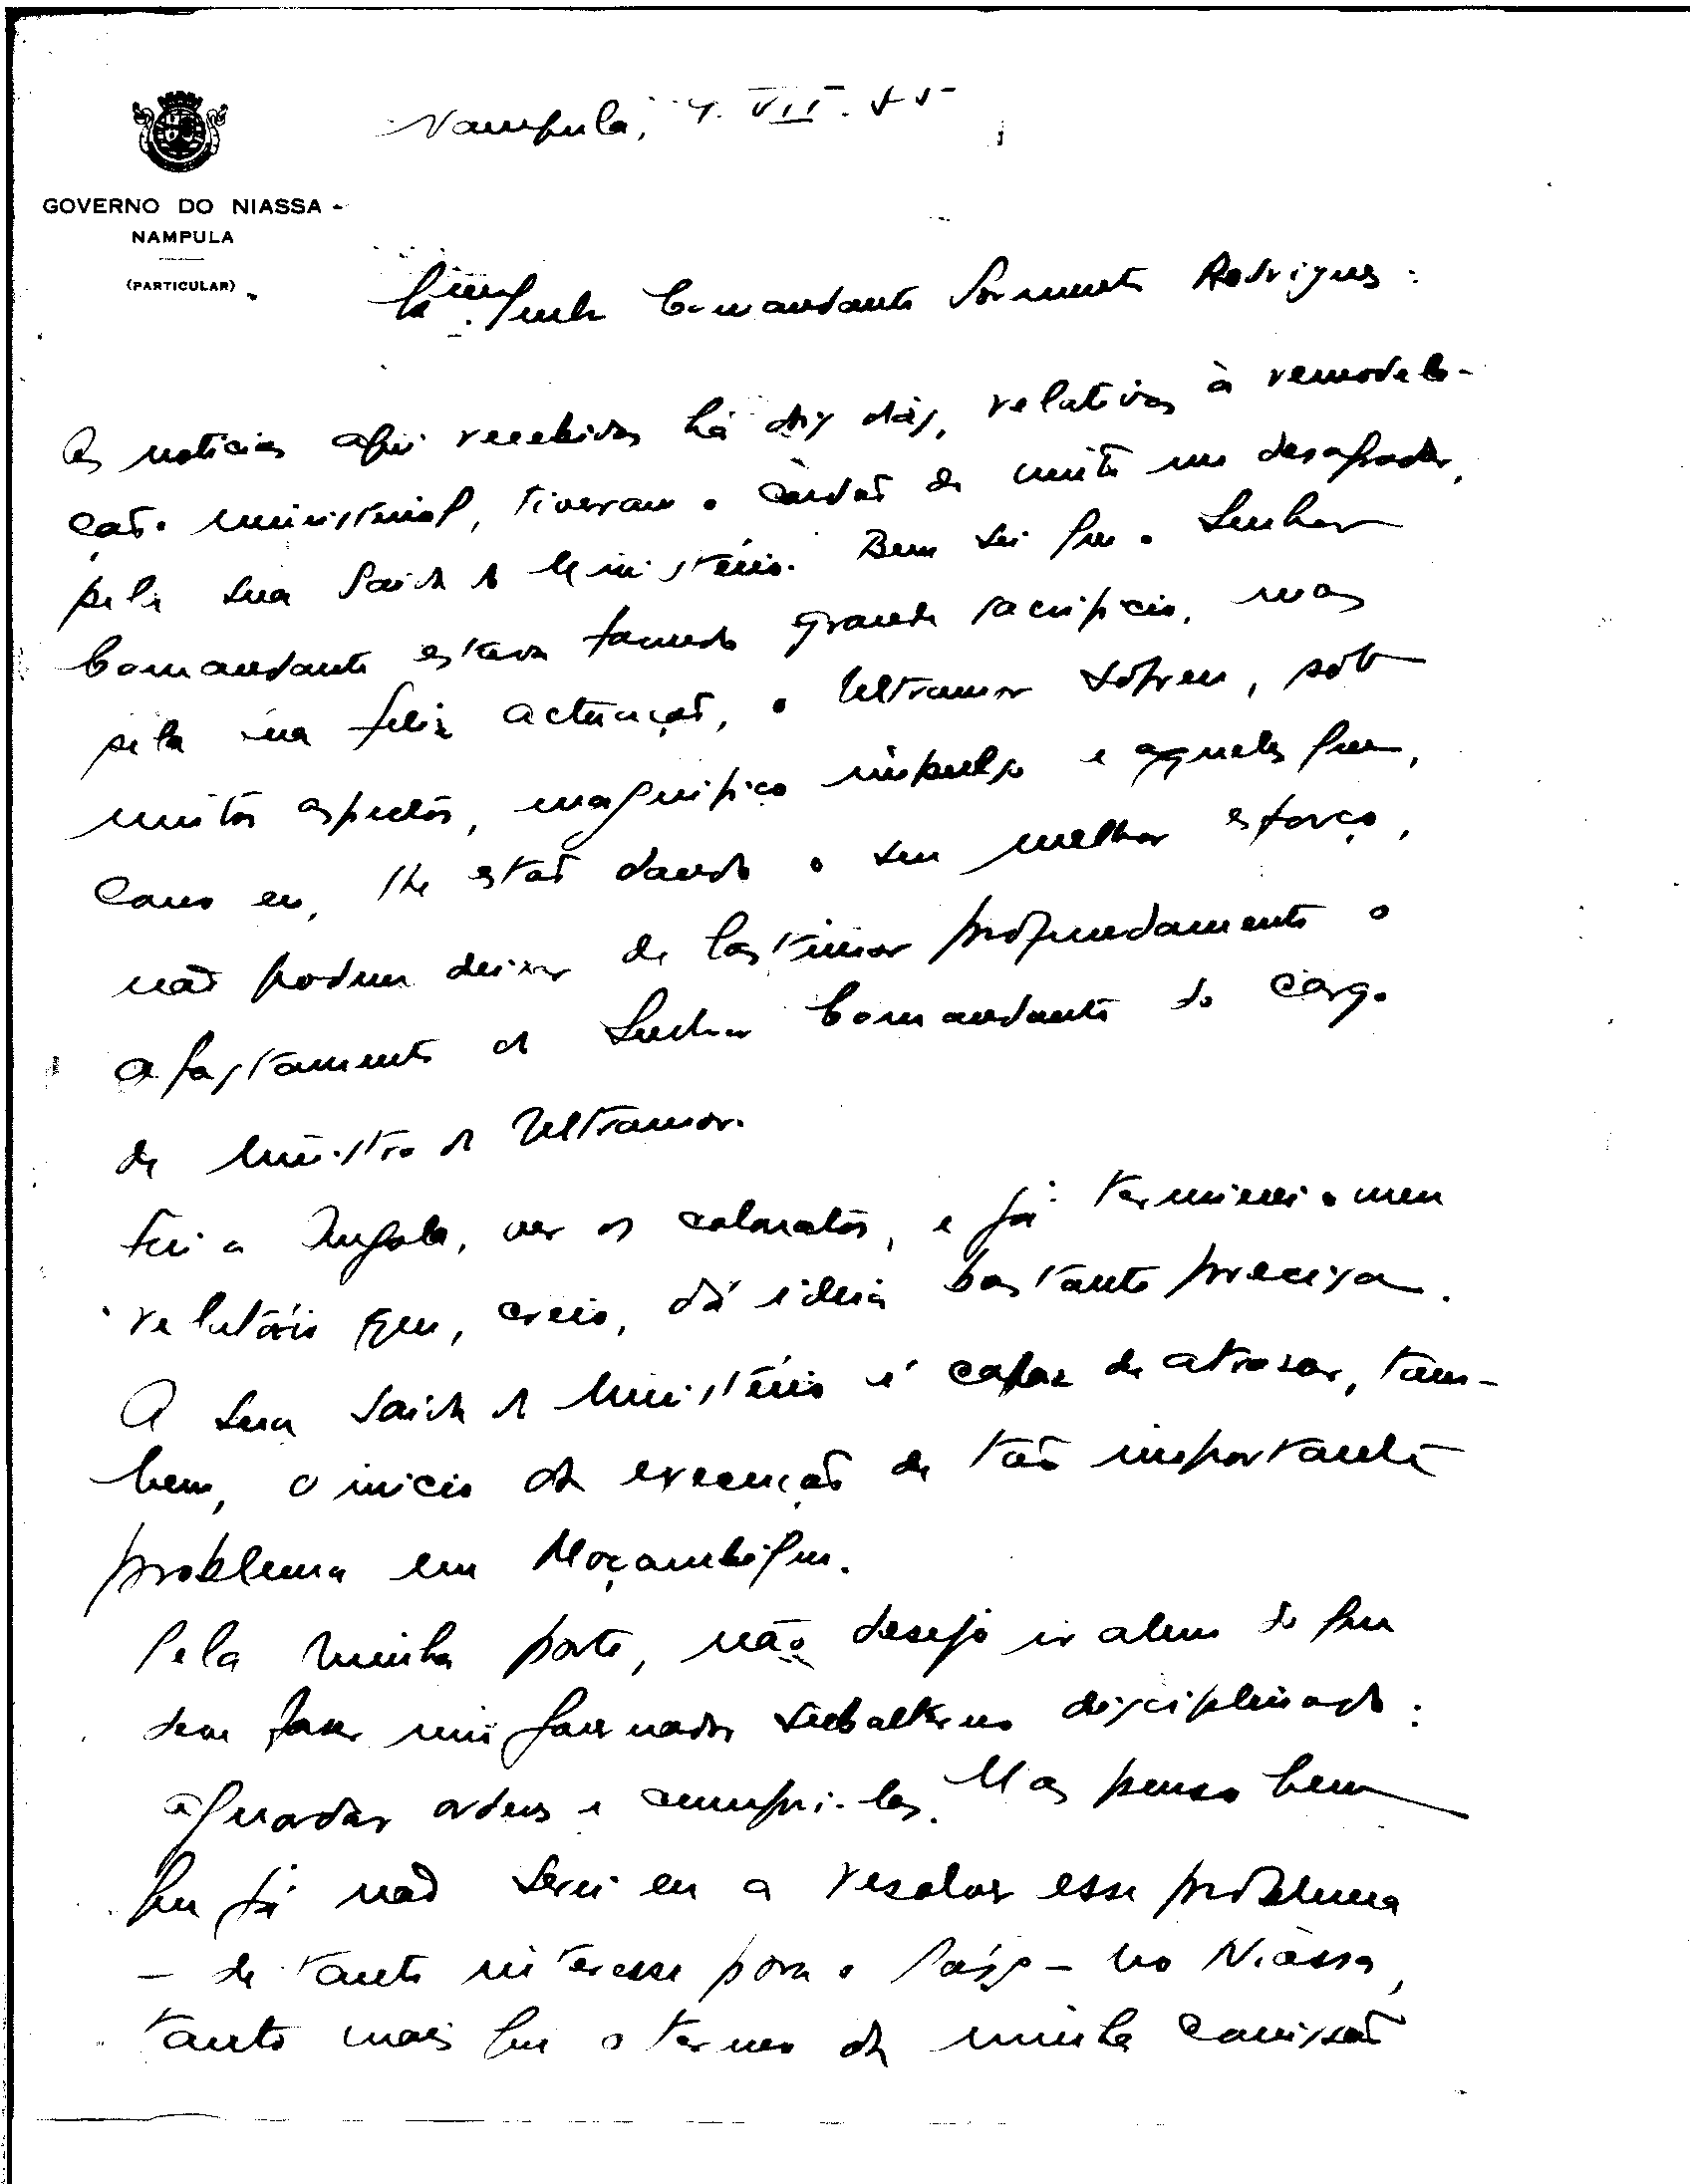 Nampula, 4. VII. 55
GOVERNO DO NIASSA
NAMPULA
(PARTICULAR)
Comandante Sarmento Rodrigues:
As notícias aqui recebidas há dias, relativas à remodela-
ção ministerial, tiveram o condão de muito me desagradar,
pela sua saída do Ministério. Bem sei que o Senhor
Comandante estava fazendo grande sacrifício, mas
pela sua feliz actuação, o Ultramar sofreu, sob
muitos aspectos, magnífico impulso e aqueles que,
como eu, lhe estão dando o seu melhor esforço,
não podem deixar de lastimar profundamente o
afastamento do Senhor Comandante do cargo
de Ministro do Ultramar.
Fui a Angola, ver os colonatos, e já terminei o meu
relatório que, creio, dá ideia bastante precisa.
A sua saída do Ministério é capaz de atrasar, tam-
bem, o início da execução de tão importante
problema em Moçambique.
Pela minha parte, não desejo ir alem do que
deve fazer um governador subalterno disciplinado:
aguardar ordens e cumpri-las. Mas penso bem
que já não serei eu a resolver esse problema
– de tanto interesse para o País – no Niassa,
tanto mais que o termo da minha comissão